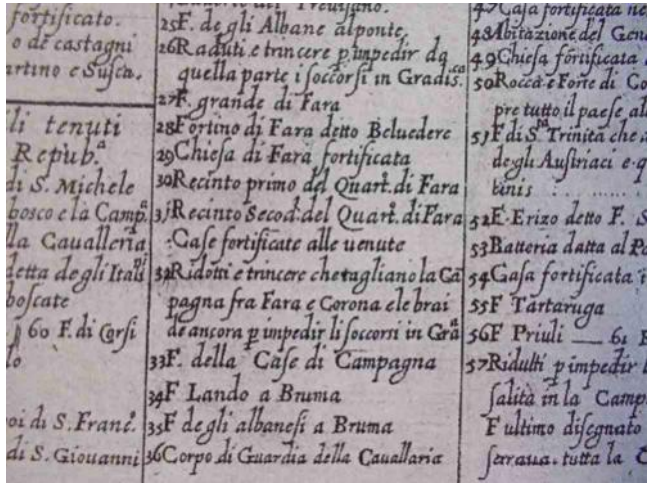 fortificato.
o de castagni
artino e Susca.
li tenuti
Repub.a
di S. Michele
bosco e la Camp.a
lla Caualleria
detta degli Itali
boscate
60 F. di Corsi
lo
oi di S. Franc.o
di S. Giouanni
Treuisano.
25 F. de gli Albane alponte
26 Raduti e trincere p impedir da
quella parte i soccorsi in Gradis.ca
27 F. grande di Fara
28 Fortino di Fara detto Beluedere
29 Chiesa di Fara fortificata
30 Recinto primo del Quart. di Fara
31 Recinto Secod. del Quart. di Fara
Case fortificate alle uenute
32 Ridotti e trincere che tagliano la Cã
pagna fra Fara e Corona ele brai
de ancora p impedir li soccorsi in Gra
33 F. della Case di Campagna
34 F Lando a Bruma
35 F de gli albanesi a Bruma
36 Corpo di Guardia della Cauallaria
47 Casa fortificata ne
48 Abitazione del Gene
49 Chiesa fortificata
50 Rocca e Forte di Go
pre tutto il paese al
51 F di S. Trinità che
degli Austriaci e q
tinis
52 F. Erizo detto F. S
53 Batteria datta al Po
54 Casa fortificata i
55 F Tartaruga
56 F Priuli 61
57 Ridulti p impedir l
salità in la Camp
F ultimo disegnato
serraua. tutta la C